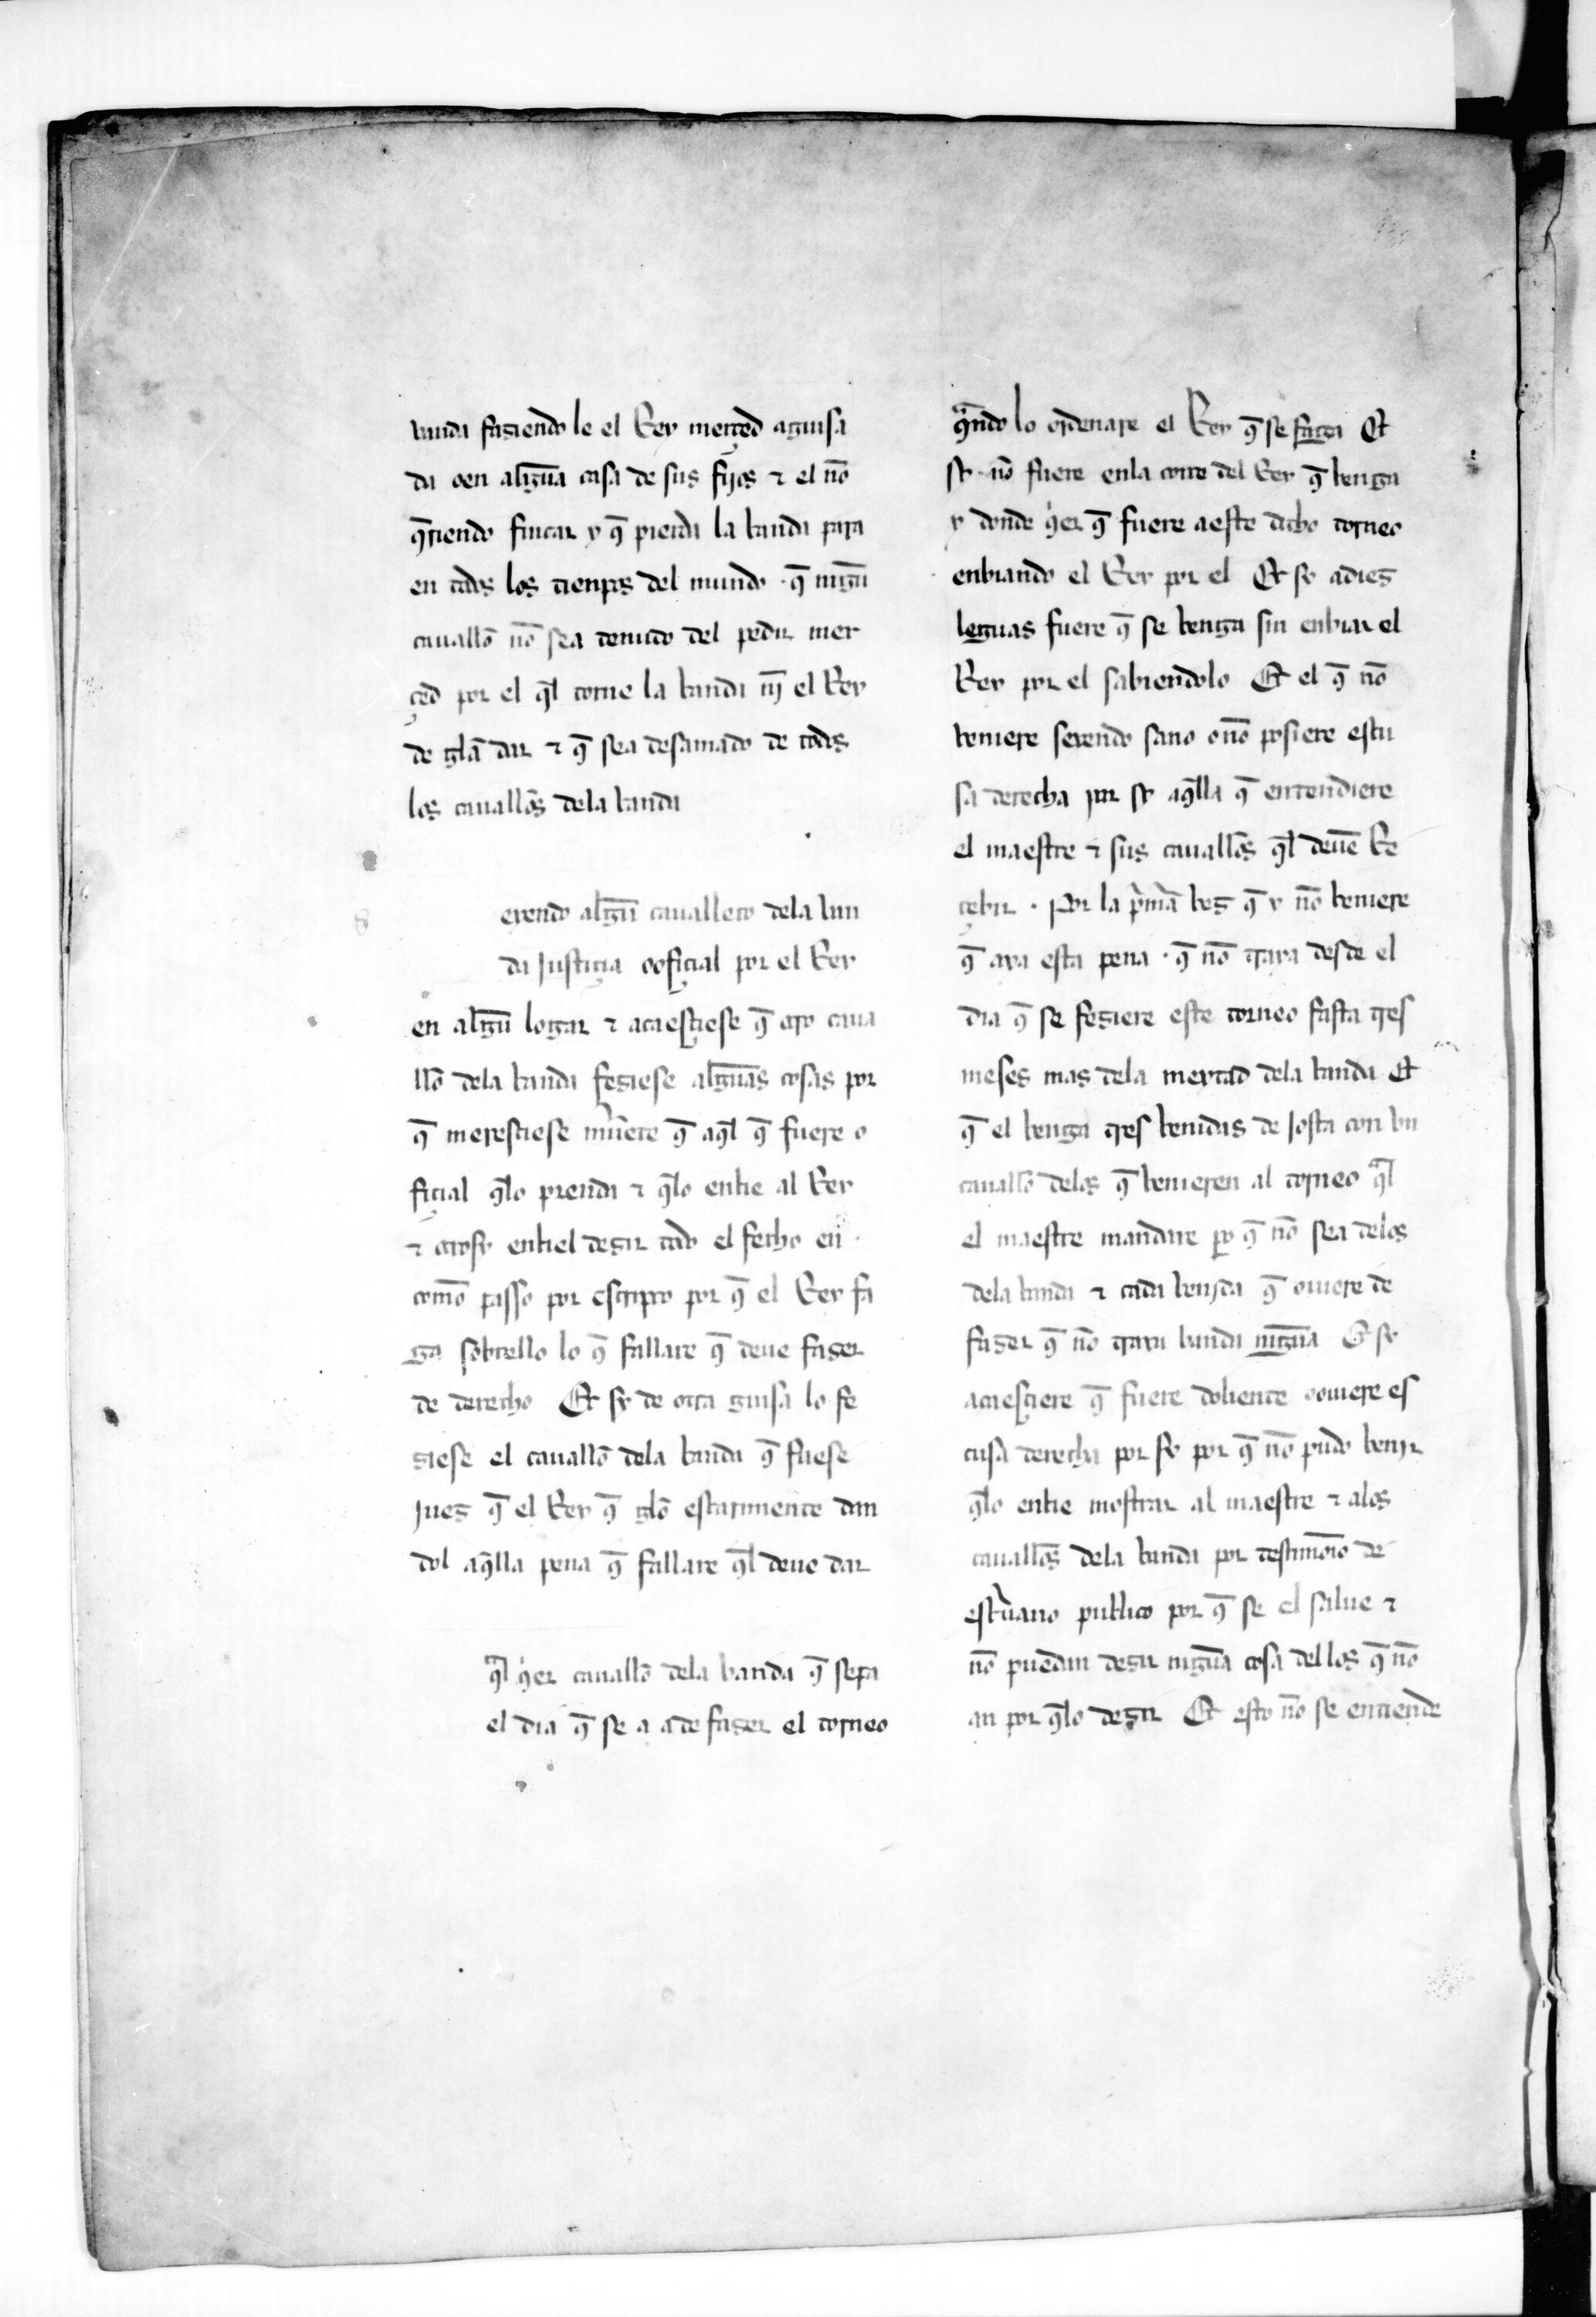 banda faziendo le el Rey merçed aguisa
da oen algũa casa de sus fijos ⁊ el nõ
q̃riendo fincar y q̃ pierda la banda para
en todos los tienpos del mundo · q̃ nigũ
cauallõ nõ sea tenudo del pedir mer
çed por el q̃l torne la banda nj̃ el Rey
de gela dar ⁊ q̃ sea desamado de todos
los cauallõs dela banda
eyendo algũ cauallero dela ban
da justiçia oofiçial por el Rey
en algũ logar ⁊ acaesçiese q̃ otro caua
llõ dela banda feziese algũas cosas por
q̃ meresçiese muerte q̃ aq̃l q̃ fuere o
fiçial q̃lo prenda ⁊ q̃lo enbie al Rey
⁊ otrosy enbiel dezir todo el fecho en
comõ passo por escripto por q̃ el Rey fa
ga sobrello lo q̃ fallare q̃ deue fazer
de derecho Et sy de otra guisa lo fe
ziese el cauallõ dela banda q̃ fuese
juez q̃ el Rey q̃ gelo escarmiente dan
dol aq̃lla pena q̃ fallare q̃l deue dar
q̃l q̃er cauallõ dela banda q̃ sepa
el dia q̃ se a ade fazer el torneo
q̃ndo lo ordenare el Rey q̃ se faga Et
sy nõ fuere enla corte del Rey q̃ benga
y donde q̃er q̃ fuere aeste dicho torneo
enbiando el Rey por el Et sy adiez
leguas fuere q̃ se benga sin enbiar el
Rey por el sabiendolo Et el q̃ nõ
beniere seyendo sano onõ posiere escu
sa derecha por sy aq̃lla q̃ entendiere
el maestre ⁊ sus cauallõs q̃l deuẽ Re
çebir · Por la p̃mera bez q̃ y nõ beniere
q̃ aya esta pena · q̃ nõ traya desde el
dia q̃ se feziere este torneo fasta tres
meses mas dela meytad dela banda Et
q̃ el benga tres benidas de josta con bn
cauallõ delos q̃ benieren al torneo q̃l
el maestre mandare pero q̃ nõ sea delos
dela banda ⁊ cada benjda q̃ ouiere de
fazer q̃ nõ traya banda nigũa Et sy
acaesçiere q̃ fuere doliente oouiere es
cusa derecha por sy por q̃ nõ pudo benjr
q̃lo enbie mostrar al maestre ⁊ alos
cauallõs dela banda por testimonio de
escriuano publico por q̃ se el salue ⁊
nõ puedan dezir nigũa cosa dellos q̃ nõ
an por q̃lo dezir Et esto nõ se entiende